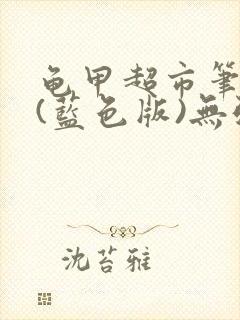 龟甲超市筆
(藍色版)無
沈苔雅